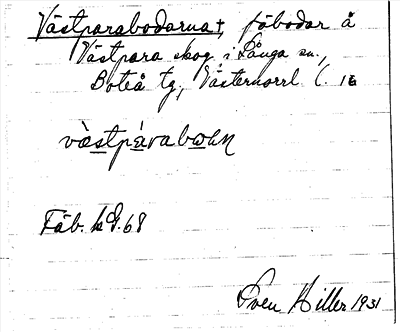 Västparabodarna †, fäbodar å
Västpara skog i Långa sn.,
Boteå tg, Västernorrl l. 16
vàstpáraboɷlɴ
Fäb. k Ed. 68
Sven Hiller 1931